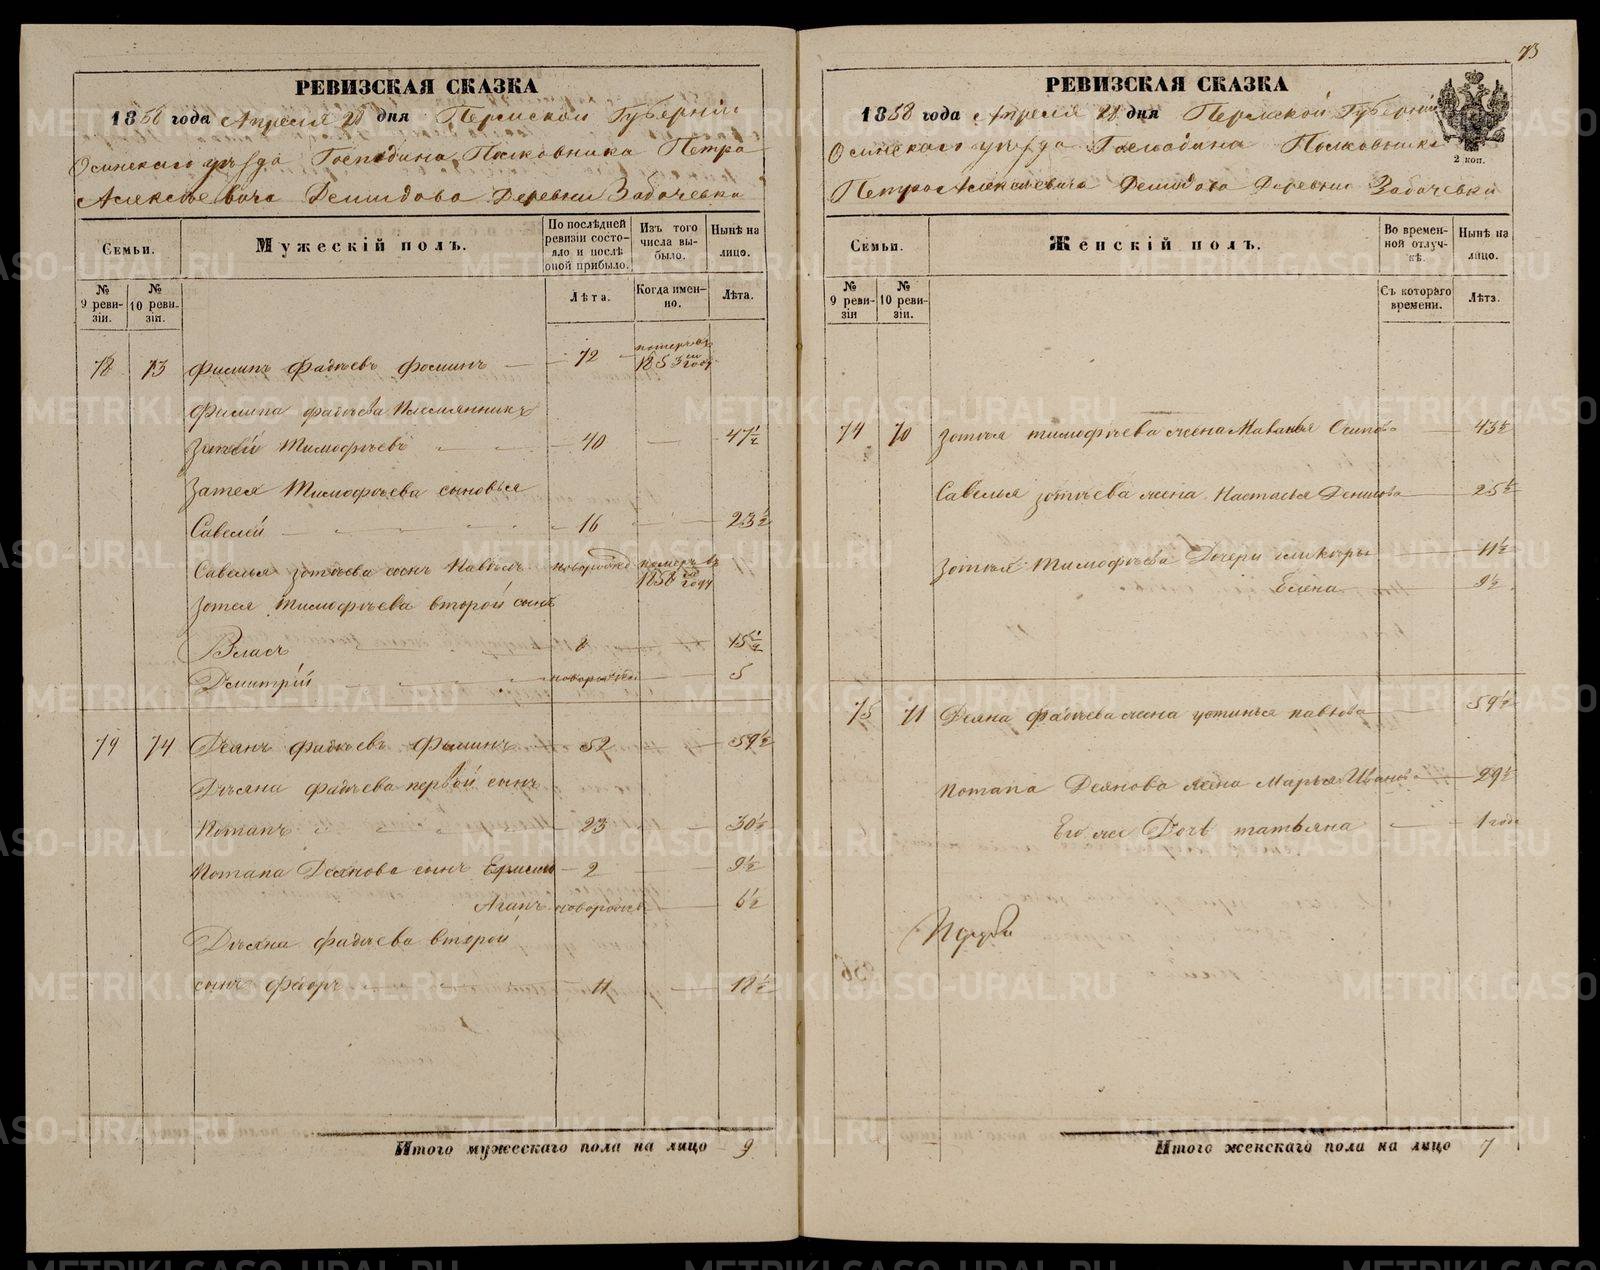 73
РЕВИЗСКАЯ СКАЗКА
1858 года Апреля 28 дня Пермской Губерніи
Осинскаго уезда Господина Полковника Петра
Алексеевича Демидова Деревни Забачевки
Семьи.
Мужескій полъ.
По послѣдней ревизіи состояло и послѣ оной прибыло.
Изъ того числа выбыло.
Нынѣ на лицо.
№ 9 ревизіи.
№ 10 ревизіи.
Лѣта.
Когда именно.
Лѣта.
78 73 Филипъ Фадѣевъ Фоминъ 72 померъ въ 1853 году
Филипа Фадѣева Племянникъ
Зотей Тимофѣевъ 40 47½
Зотея Тимофѣева сыновья
Савелей 16 23½
Савелья Зотѣева сынъ новорожд померъ въ 1858 году
Зотея Тимофѣева второй сынъ
Власъ 8 15½
Дмитрій новорожден 5
79 74 Деянъ Фадѣевъ Фоминъ 52 59½
Дѣяна Фадѣева первой сынъ
Потапъ 23 30½
Потапа Деянова сынъ 2 9½
Агапъ новорожден 6½
Дѣяна Фадѣева второй
сынъ Федоръ 11 18½
Итого мужескаго пола на лицо 9
РЕВИЗСКАЯ СКАЗКА
1858 года Апреля 28 дня Пермской Губерніи
2 коп.
Осинскаго уезда Господина Полковника
Петра Алексеевича Демидова Деревни Забачевки
Семьи.
Женскій полъ.
Во временной отлучкѣ.
Нынѣ на лицо.
№ 9 ревизіи
№ 10 ревизіи.
Съ котораго времени.
Лѣта.
74 70 Зотея тимофѣева жена Маланья Осипова 43½
Савелья Зотѣева жена Настасья Денисова 25½
Зотея Тимофѣева Дочери 11½
Елена 9½
75 71 Деяна Фадѣева жена устинья павлова 59½
Потапа Деянова жена Марья Иванова 29½
Его же Дочь татьяна 1 года
Итого женскаго пола на лицо 7
METRIKI.GASO-URAL.RU